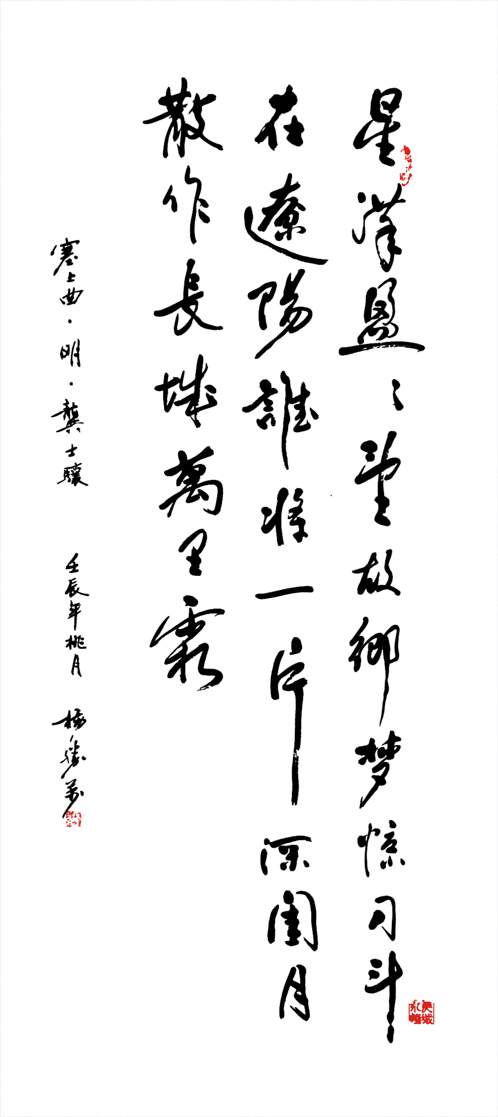 星漢盈々望故鄉梦惊刁斗
在遼陽誰將一片深閨月
散作長城萬里霜
塞上曲·明·龔士驤 壬辰年桃月